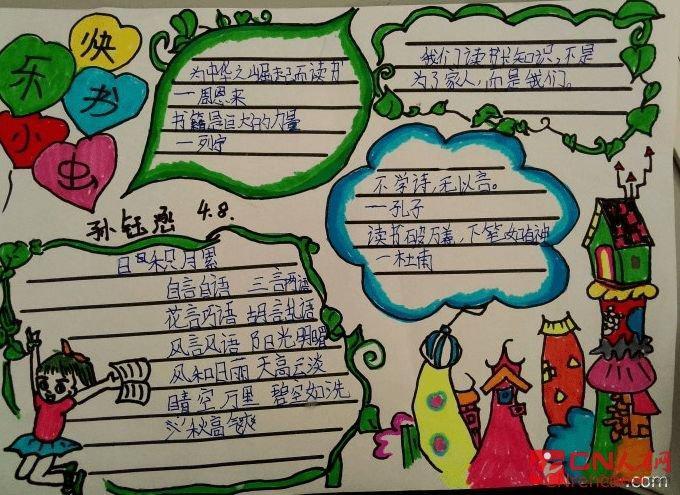 快
乐书
小虫
为中华之崛起而读书
一周恩来
书籍是巨大的力量
一列宁
我们读书长知识,不是
为了家人,而是我们。
不学诗,无以言。
一孔子
读书破万卷,下笔如有神
一杜甫
4.8.
日积月累
自言自语 三言两语
花言巧语 胡言乱语
风言风语 阳光明媚
风和日丽 天高云淡
晴空万里 碧空如洗
秋高气爽
CN人网
.com